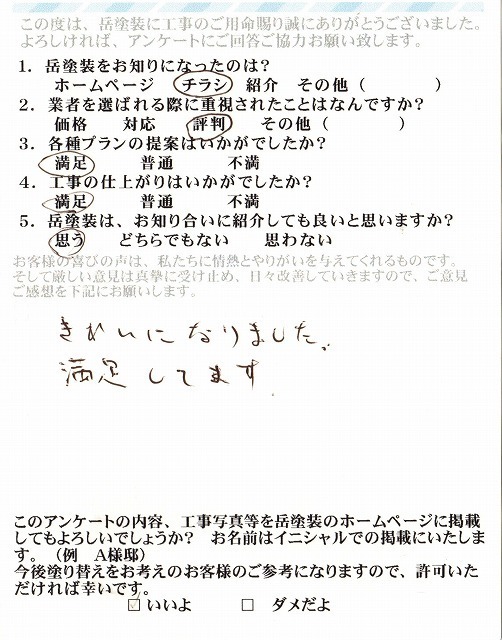 この度は、岳塗装に工事のご用命賜り誠にありがとうございました。
よろしければ、アンケートにご回答ご協力お願い致します。
1．岳塗装をお知りになったのは？
ホームページ　チラシ　紹介　その他（　　　　）
2．業者を選ばれる際に重視されたことはなんですか？
価格　対応　評判　その他（　　　　）
3．各種プランの提案はいかがでしたか？
満足　普通　不満
4．工事の仕上がりはいかがでしたか？
満足　普通　不満
5．岳塗装は、お知り合いに紹介しても良いと思いますか？
思う　どちらでもない　思わない
お客様の喜びの声は、私たちに情熱とやりがいを与えてくれるものです。
そして厳しい意見は真摯に受け止め、日々改善していきますので、ご意見
ご感想を下記にお願いします。
きれいになりました。
満足してます
このアンケートの内容、工事写真等を岳塗装のホームページに掲載
してもよろしいでしょうか？　お名前はイニシャルでの掲載にいたしま
す。（例　A様邸）
今後塗り替えをお考えのお客様のご参考になりますので、許可いた
だければ幸いです。
☑ いいよ　□ ダメだよ